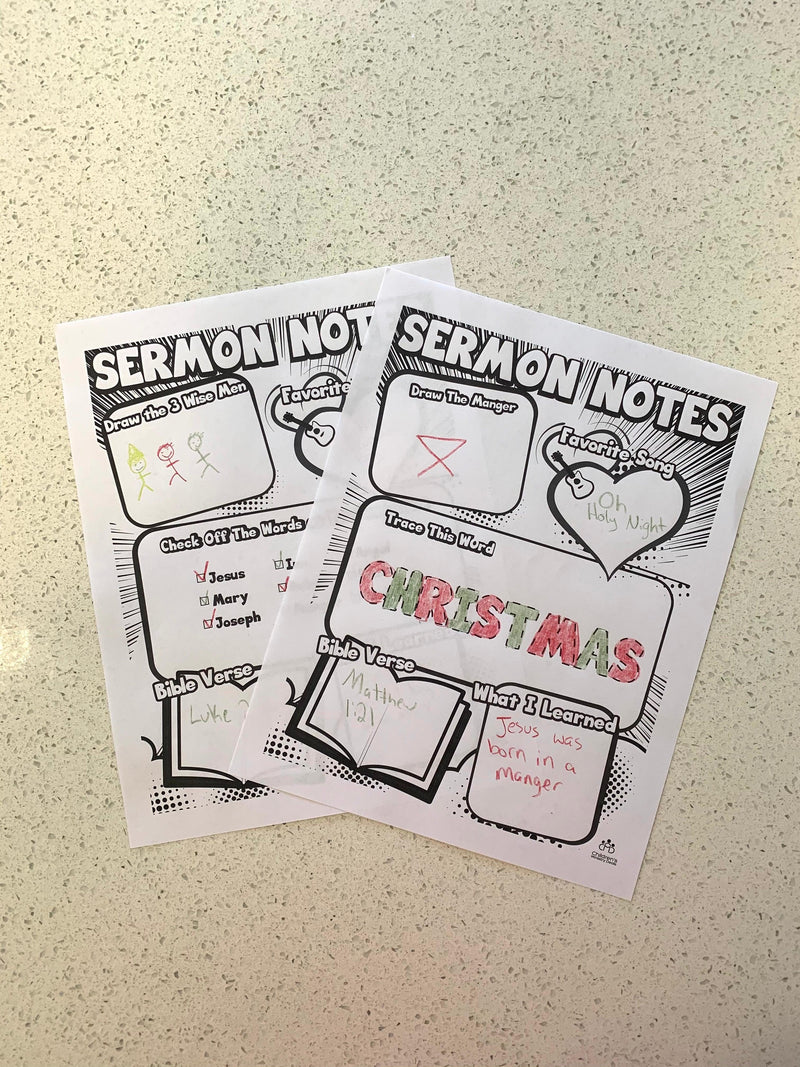 SERMON NOT
Draw the 3 Wise Men
Favorite
Check Off The Words
Jesus
Mary
Joseph
Bible Verse
Luke 2
SERMON NOTES
Draw The Manger
Favorite Song
Oh
Holy Night
Trace This Word
CHRISTMAS
Bible Verse
Matthew
1:21
What I Learned
Jesus was
born in a
manger
Children's